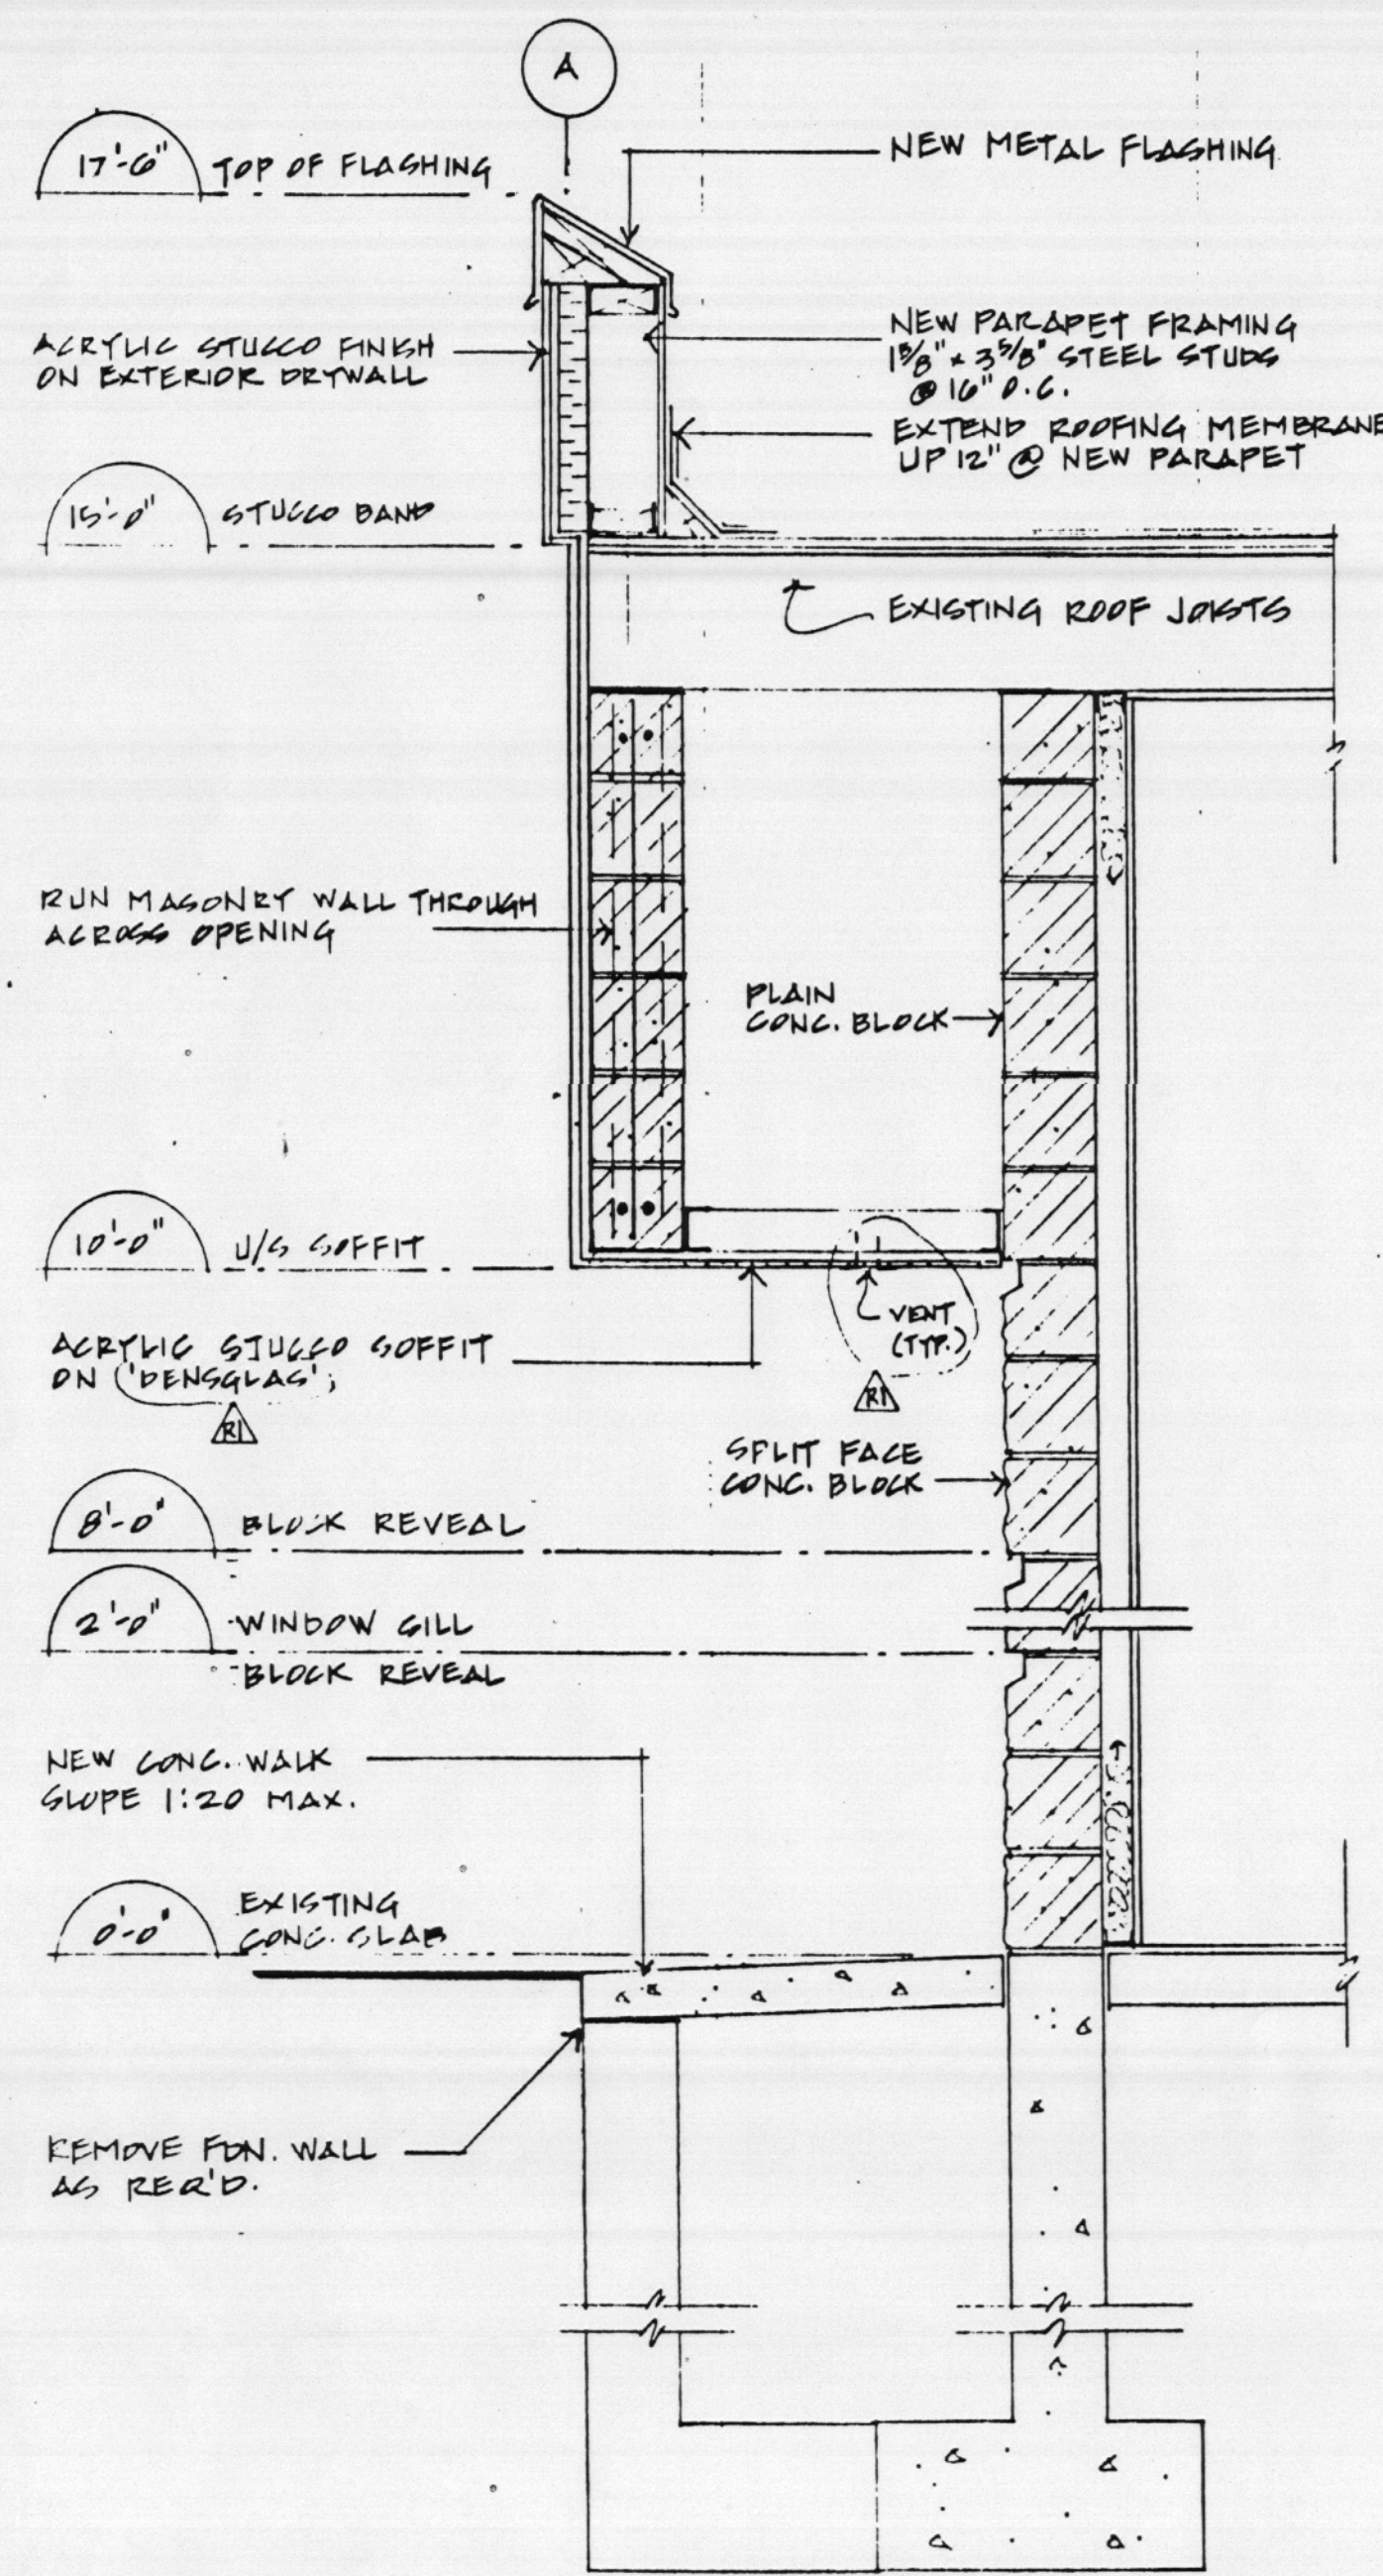 A
17'-6" TOP OF FLASHING
NEW METAL FLASHING
ACRYLIC STUCCO FINISH
ON EXTERIOR DRYWALL
NEW PARAPET FRAMING
1 5/8" x 3 5/8" STEEL STUDS
@ 16" O.C.
EXTEND ROOFING MEMBRANE
UP 12" @ NEW PARAPET
15'-0" STUCCO BAND
EXISTING ROOF JOISTS
RUN MASONRY WALL THROUGH
ACROSS OPENING
PLAIN
CONC. BLOCK
10'-0" U/S SOFFIT
VENT
(TYP.)
R1
ACRYLIC STUCCO SOFFIT
ON 'DENSGLAS';
R1
SPLIT FACE
CONC. BLOCK
8'-0" BLOCK REVEAL
2'-0" WINDOW SILL
BLOCK REVEAL
NEW CONC. WALK
SLOPE 1:20 MAX.
0'-0" EXISTING
CONC. SLAB
REMOVE FDN. WALL
AS REQ'D.